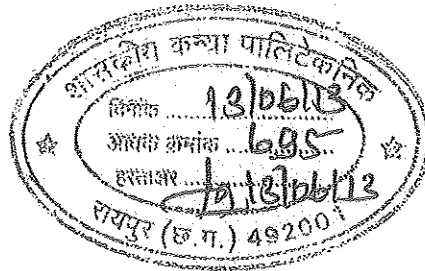 शासकीय कन्या पालिटेकनिक
दिनांक ........ 13/06/13
आवक क्रमांक ..... 695
हस्ताक्षर ........ 13/06/13
रायपुर (छ.ग.) 492001